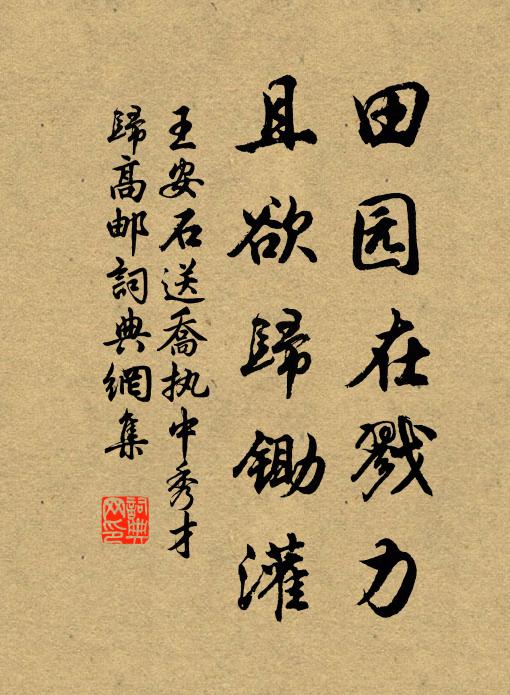 田园在戮力
且欲歸鋤灌
王安石送喬执中秀才
歸高邮詞典網集
詞典
网印